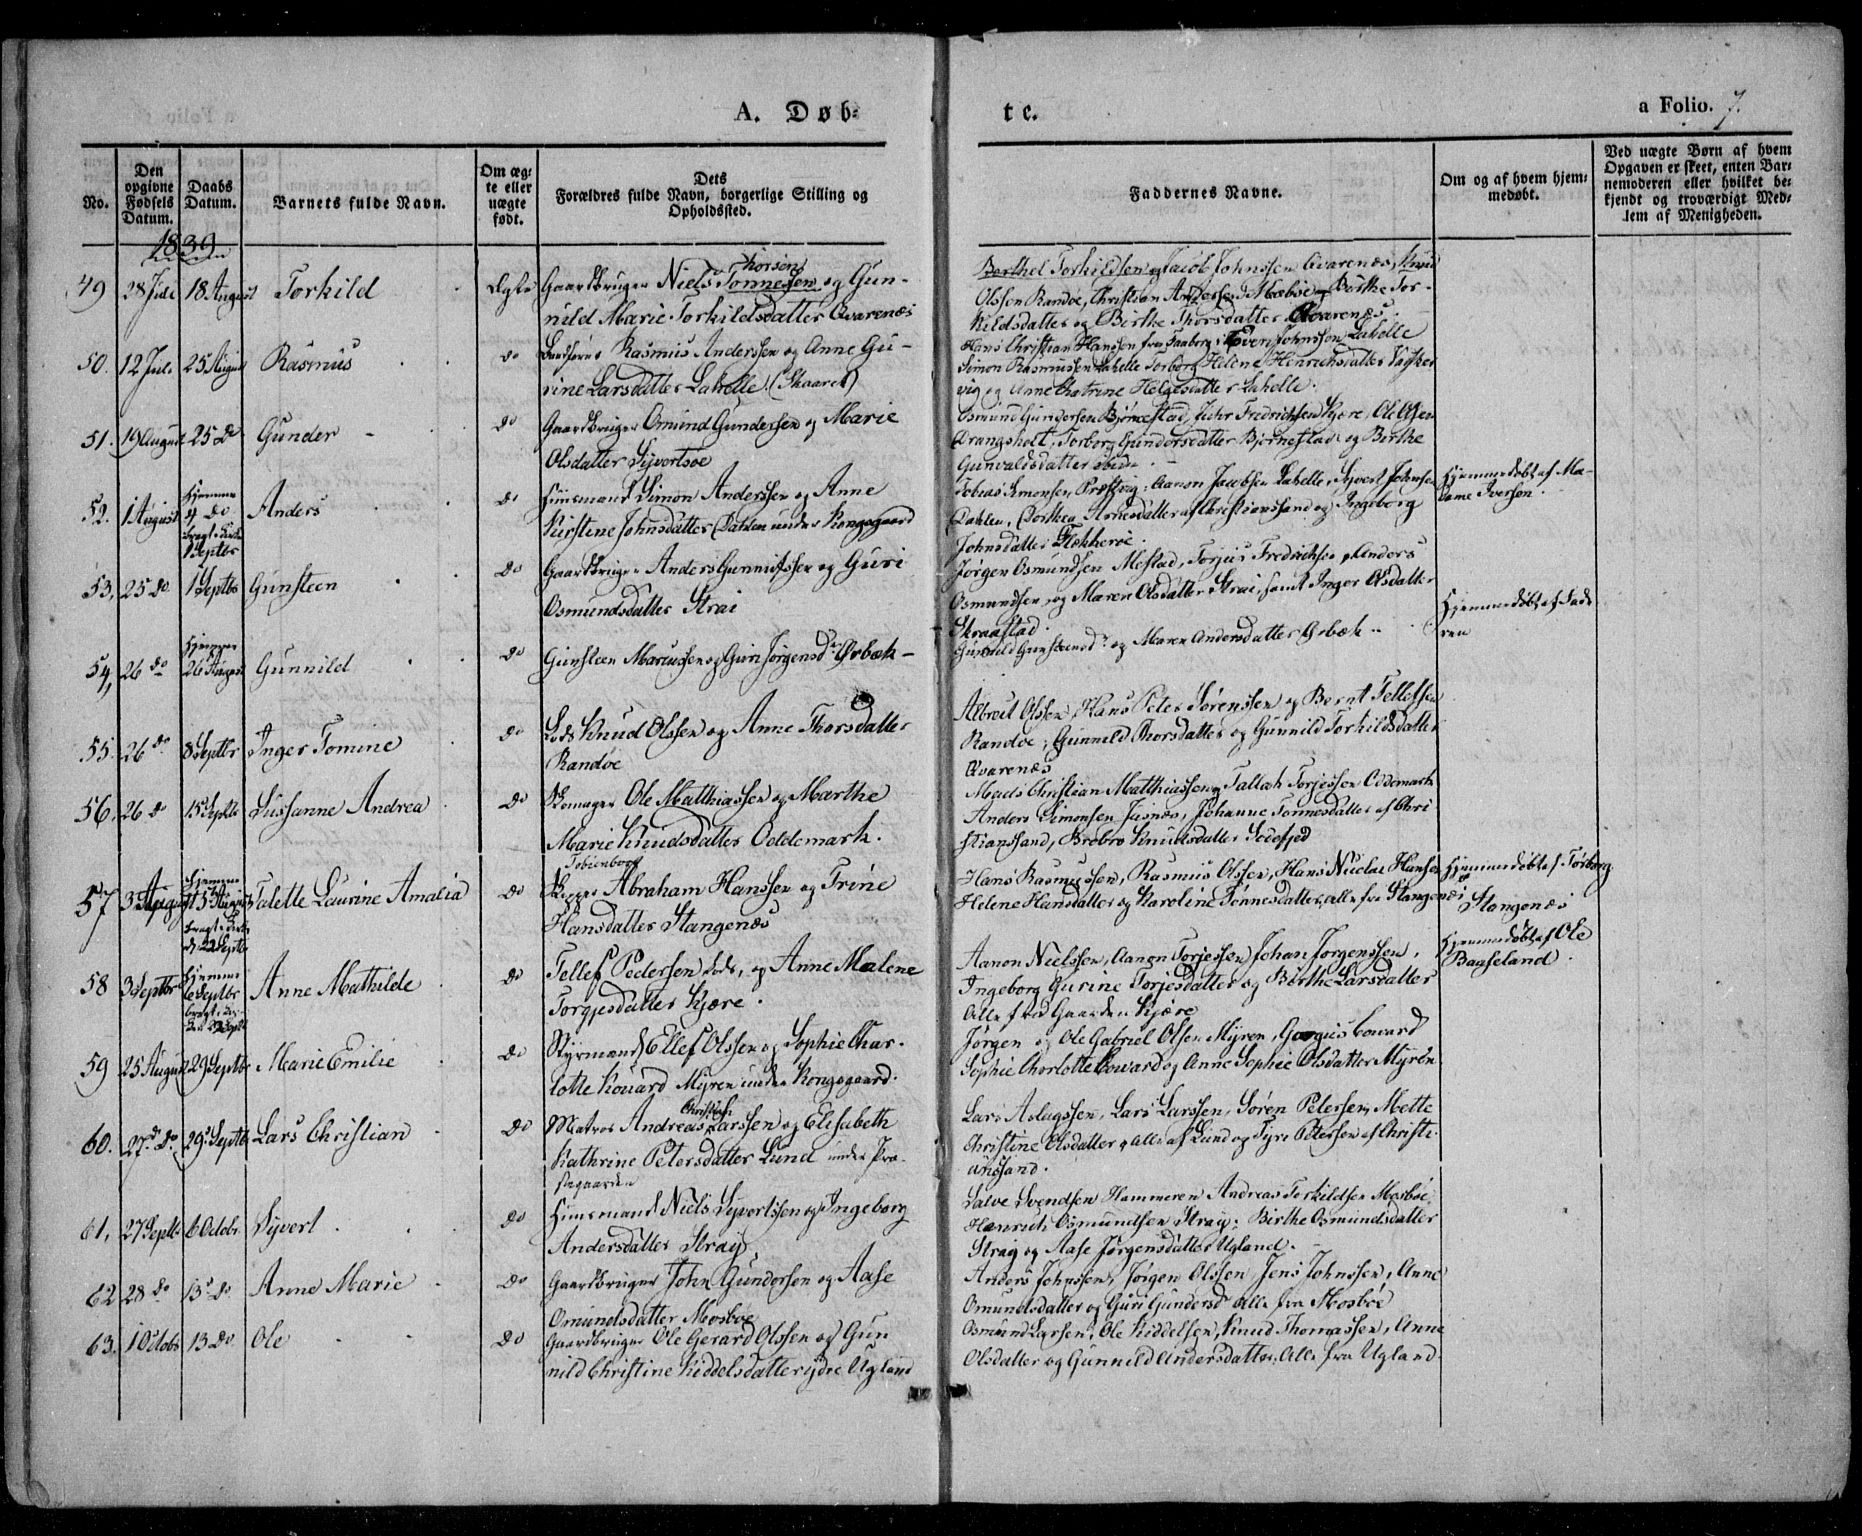 A. Døb-
te.
a Folio. 7.
No.
Den opgivne Fødsels Datum.
Daabs Datum.
Barnets fulde Navn.
Om ægte eller uægte født.
Dets Forældres fulde Navn, borgerlige Stilling og Opholdssted.
Faddernes Navne.
Om og af hvem hjemmedøbt.
Ved uægte Børn af hvem Opgaven er skeet, enten Barnemoderen eller hvilket bekjendt og troværdigt Medlem af Menigheden.
1839
49 28 Juli 18 August Torkild Ægte Gaardbruger Niels Thorsen Tønnesen og Gun-
nild Marie Torkildsdatter Qvarenæs
Berthel Torkildsen og Jacob Johnssen Qvarenæs, Knud
Olssen Randøe, Christian Anderssen Mæbøe, Birthe Tor-
kildsdatter og Birthe Thorsdatter Qvarenæs.
50. 12 Juli 25 August Rasmus do Rasmus Anderssen og Anne Gu-
rine Larsdatter Lahelle (Skaaret)
Hans Christian Hanssen fra Faaborg, Even Johnssen Lahelle
Simon Rasmussen Lahelle Torborg Helene Henrichsdatter
vig og Anne Chatrine Helgesdatter Lahelle.
51. 19 August 25 do Gunder do Gaardbruger Omund Gundersen og Marie
Olsdatter Syvertsøe
Osmund Gundersen Bjørnestad, Fredrichsen Kjøre, Ole Olsen
Drangsholt, Torborg Gundersdatter Bjørnestad og Birthe
Gunvaldsdatter ibidm.
52. 1 August Hjemme 4 do bragt i Kirke 1 Septbr Anders do Huusmand Simon Anderssen og Anne
Kirstine Johnsdatter Dahlen under Kongsgaard
Tobias Simonsen Præstvig, Aanon Jacobsen Lahelle, Syvert Johnsen
Dahlen, Dorthea Arnesdatter af Christianssand og Ingeborg
Johnsdatter Flekkerøe.
Hjemmedøbt af Ma-
dame Iverson.
53, 25 do 1 Septbr Gunsteen do Gaardbruger Anders Gunnufssen og Guri
Osmundsdatter Strai
Jørgen Osmundsen Mestad, Torjus Fredrichsen, Anders
Osmundsen, og Maren Olsdatter Strai, samt Inger Olsdatter
Straastad.
54, 26 do Hjemme 26 August Gunnild do Gunsteen Marcussen og Guri Jørgensdr Ørbæk
Gunnild Gunsteensdr og Maren Andersdatter Ørbæk
Hjemmedøbt af Fade-
ren
55. 26 do 8 Septbr Inger Tomine do Lods Knud Olssen og Anne Thorsdatter
Randøe
Albreit Olssen, Hans Peter Sørenssen og Bernt Tellefsen
Randøe, Gunnild Thorsdatter og Gunnild Torkildsdatter
Qvarenæs
56, 26 do 15 Septbr Sussanne Andrea do Skomager Ole Matthiassen og Marthe
Marie Knudsdatter Oddemark.
Mads Christian Matthiassen, Tallak Torjessen Oddemark
Anders Simonsen, Johanne Tønnesdatter af Chri-
stianssand, Brebro Knudsdatter Sodefjed
57 3 August Hjemme August bragt i Kirke d. 22 Septbr Talette Laurine Amalia do Skipper Tobienborg Abraham Hanssen og Trine
Hansdatter Stangenæs
Hans Rasmussen, Rasmus Olssen, Hans Nicolai Hansen
Helene Hansdatter og Karoline Tønnesdatter, alle fra Stangenæs
Hjemmedøbt af Torborg
Stangenæs
58 3 Septbr Hjemme 6 Septbr bragt i Kir-
ken 22 Septb Anne Mathilde do Tellef Pedersen Lods, og Anne Malene
Torgjesdatter Kjære.
Aanon Nielssen, Aanon Torjessen, Johan Jørgenssen,
Ingeborg Gurine Torjesdatter og Birthe Larsdatter
Alle fra Gaarden Kjære
Hjemmedøbt af Ole
Baaseland.
59 25 August 29 Septbr Marie Emilie do Styrmand Ellef Olssen og Sophie Char-
lotte Kouard Myren under Kongsgaard.
Jørgen og Ole Gabriel Olsen Myren, Coward
Sophie Chorlotte Coward og Anne Sophie Olsdatter Myren
60. 27 do 29 Septbr Lars Christian do Matros Andreas Christian Larssen og Elisabeth
Kathrine Petersdatter Lund under Præ-
stegaarden
Lars Aslagssen, Lars Larssen, Søren Petersen, Mette
Christine Olsdatter, alle af Lund og Petersen af Christi-
anssand.
61, 27 Septbr 6 Octobr Syvert do Huusmand Niels Syvertssen og Ingeborg
Andersdatter Stray
Salve Svendsen Hammeren, Andreas Torkildsen Mosbøe,
Henrich Osmundsen Stray, Birthe Osmundsdatter
Stray og Aase Jørgensdatter Ugland.
62 28 do 13 do Anne Marie do Gaardbruger John Gundersen og Aase
Omundsdatter Mosbøe
Anders Johnssen, Jørgen Olssen, Jens Johnssen, Anne
Omundsdatter og Guri Gundersd alle fra Mosbøe
63. 1 Octobr 13 do Ole do Gaardbruger Ole Gerard Olssen og Gun
nild Christine Kiddelsdatter ydre Ugland
Osmund Larsen, Ole Kiddelsen, Knud Thomassen, Anne
Olsdatter og Gunnild Andersdatter, alle fra Ugland.